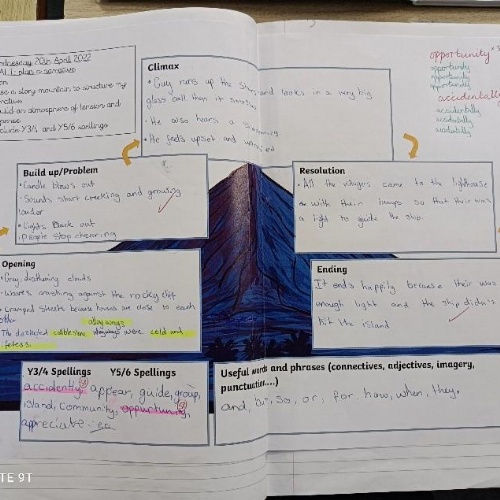 Wednesday 20th April 2022
use a story mountain to structure my
build an atmosphere of tension and
include Y3/4 and Y5/6 spellings
Climax
• Guy runs up the stairs and looks in a very big
glass ball then it smashes
• He also hears a
• He feels upset and
opportunity
opportunity
opportunity
opportunity
accidentally
accidentally
accidentally
accidentally
Build up/Problem
• Candle blows out
• Sounds start creeking and growing
louder
• Lights Back out
people stop cheering
Resolution
• All the villagers came to the lighthouse
with their lamps so that their was
a light to guide the ship.
Opening
• Gray, deafening clouds
• Waves crashing against the rocky cliff
• Cramped streets because houses are close to each
other
alleyways
The cobblestone alleyways were cold and
Ending
It ends happily because their was
enough light and the ship didn't
hit the island
Y3/4 Spellings Y5/6 Spellings
accidently, appear, guide, group,
island, community, oppurtunity,
appreciate
Useful words and phrases (connectives, adjectives, imagery,
punctuation....)
and, but, so, or, for how, when, they,
TE 9T